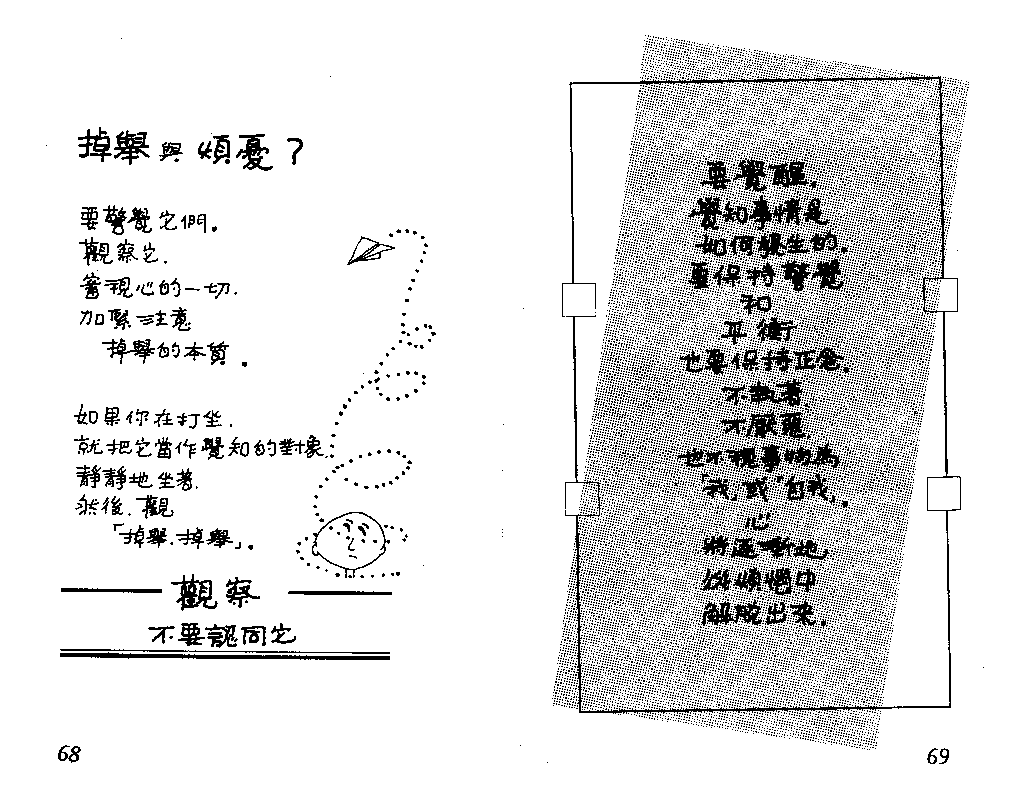 掉舉與煩憂？
要警覺它們。
觀察它.
審視心的一切.
加緊注意
掉舉的本質。
如果你在打坐.
就把它當作覺知的對象.
靜靜地坐著.
然後.觀
「掉舉.掉舉」。
觀察
不要認同它
68
要覺醒.
覺知事情是
如何發生的.
要保持警覺
和
平衡
也要保持正念.
不執著
不厭惡
也不視事物為
「我」或「自我」.
心
將逐漸地
從煩惱中
解脫出來.
69